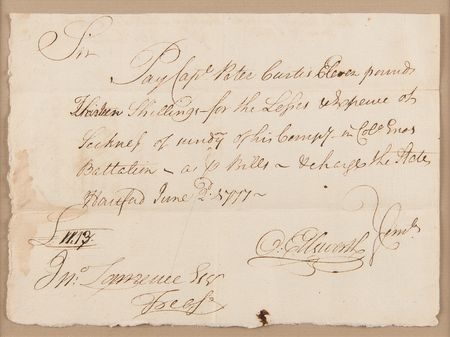 Sir
Pay Capt Peter Curtis Eleven pounds
Thirteen Shillings for the Losses & Expence of
Sickness of sundry of his Compy. in Colo. Enos
Battalion – as p Bills – & charge the State
Hartford June 2d. 1777 –
£11.13.
O. Ellsworth
Jno. Lawrence Esqr
Treasr